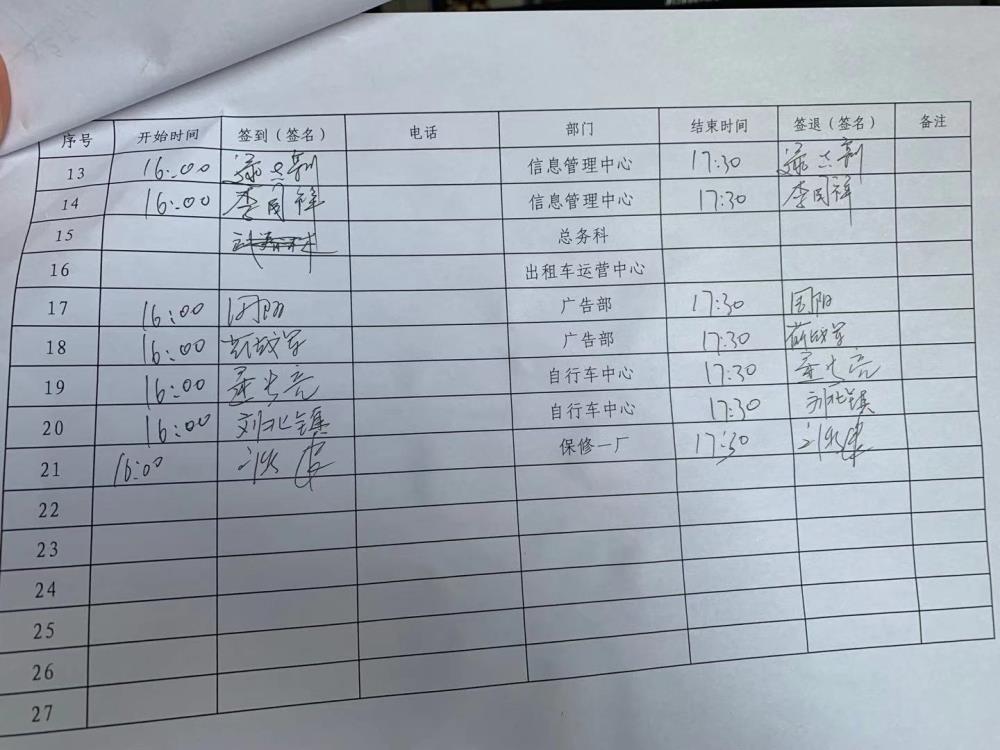 序号 开始时间 签到（签名） 电话 部门 结束时间 签退（签名） 备注
13 16:00 信息管理中心 17:30
14 16:00 李国祥 信息管理中心 17:30 李国祥
15 总务科
16 出租车运营中心
17 16:00 广告部 17:30
18 16:00 广告部 17:30
19 16:00 自行车中心 17:30
20 16:00 刘北镇 自行车中心 17:30 刘北镇
21 16:00 保修一厂 17:30
22
23
24
25
26
27